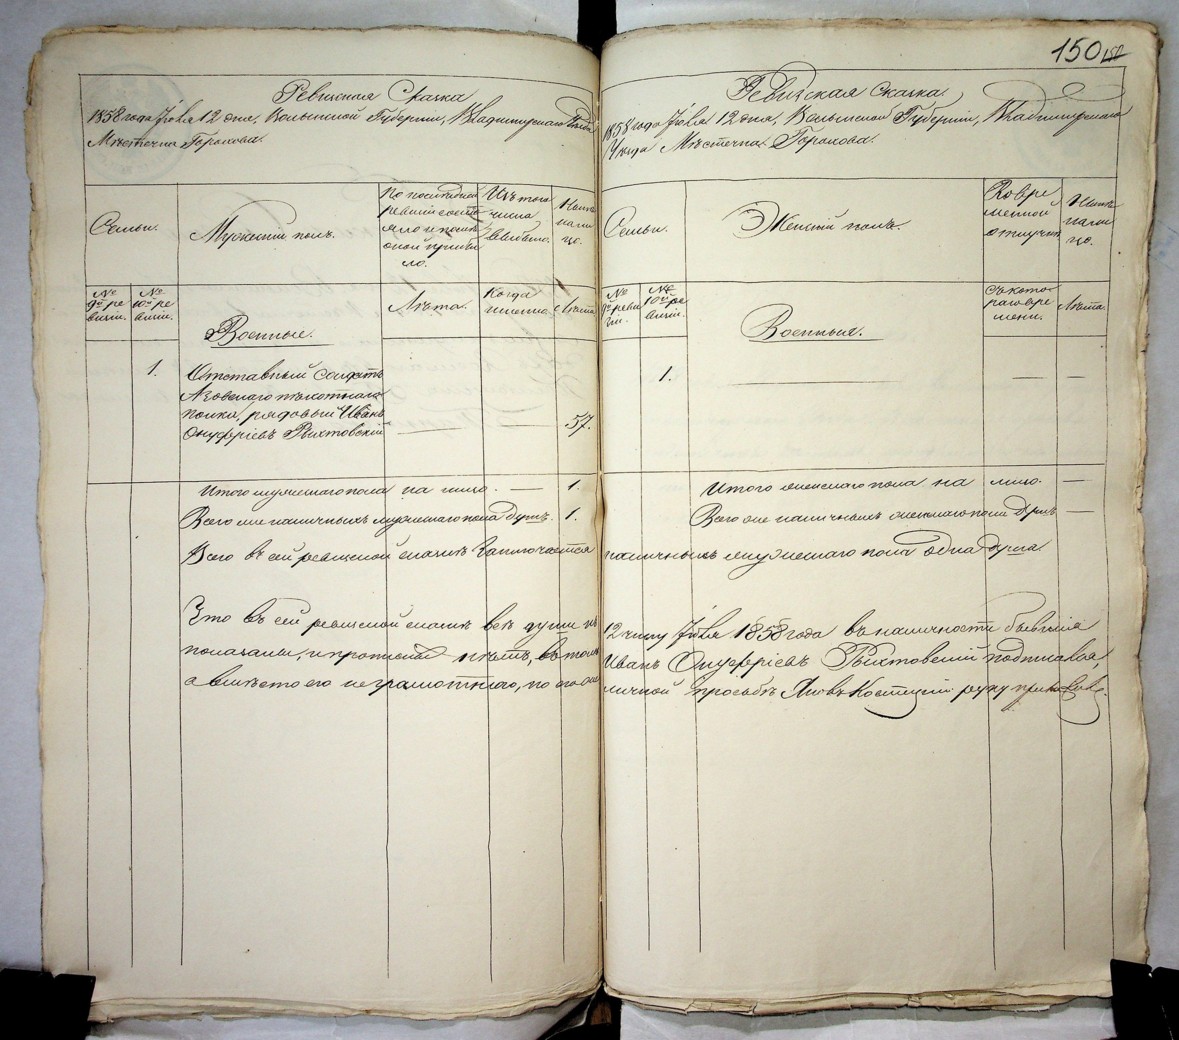 150
Ревизская Сказка
1858 года Июля 12 дня, Волынской Губернии, Владимирскаго Уезда
Мѣстечка Горохова.
Семьи.
Мужескій полъ.
По последней
ревизіи состо
яло и после
оной прибы
ло.
Изъ того
числа
выбыло.
Нынѣ
на ли
цо.
№
9й ре
визіи.
№
10й ре
визіи.
Лѣта.
Когда
именно.
Лѣта
Военные.
1.
Отставный солдатъ
Азовскаго пѣхотнаго
полка, рядовый Иванъ
Онуфріевъ Рыхтовскій
57.
Итого мужескаго пола на лицо. — 1.
Всего же наличныхъ мужескаго пола душъ. 1.
Всего въ сей ревизской сказкѣ заключается
Что въ сей ревизской сказкѣ всѣ души къ
показаны, и прописныхъ нѣтъ, въ томъ
а вмѣсто его неграмотнаго, по его
Ревизская Сказка
1858 года Июля 12 дня, Волынской Губерніи, Владимирскаго
Уезда Мѣстечка Горохова.
Семьи.
Женскій полъ.
Во вре
менной
отлучкѣ
Нынѣ
на ли
цо.
№
9й реви
зіи.
№
10й ре
визіи.
Съ кото
раго вре
мени.
Лѣта.
Военныя.
1.
Итого женскаго пола на лицо. —
Всего же наличныхъ женскаго пола душъ —
наличныхъ мужескаго пола одна душа
12 числу Июля 1858 года въ наличности бывшія
Иванъ Онуфріевъ Рыхтовскій подписался,
личной просьбѣ Яковъ Костецкій руку приложилъ.